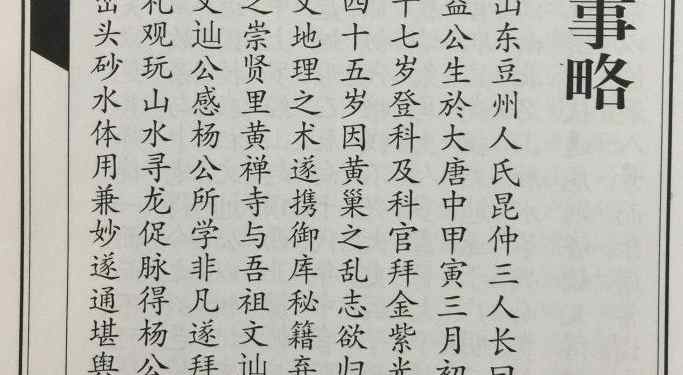 事略
山东豆州人氏昆仲三人长曰
益公生於大唐中甲寅三月初
十七岁登科及科官拜金紫光
四十五岁因黄巢之乱志欲归
文地理之术遂携御库秘籍弃
之崇贤里黄禅寺与吾祖文辿
文辿公感杨公所学非凡遂拜
礼观玩山水寻龙促脉得杨公
峦头砂水体用兼妙遂通堪舆